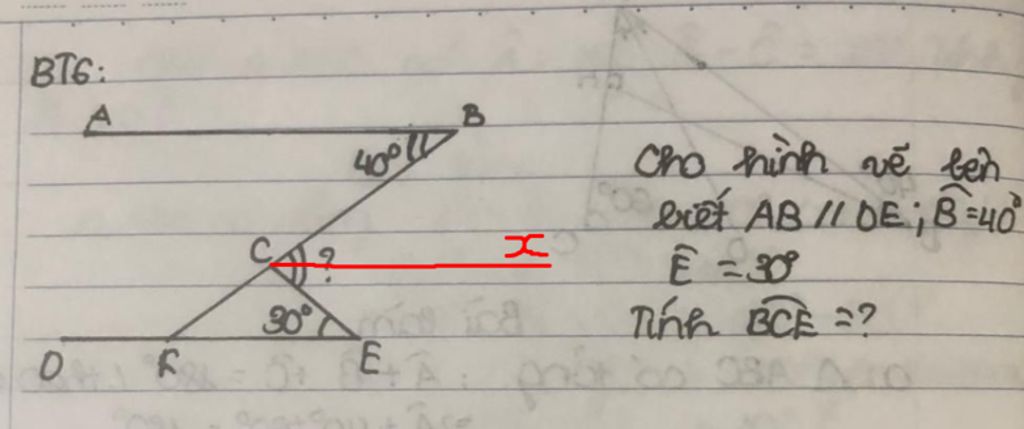 BT6:
A
B
40°
C
?
x
30°
D
F
E
Cho hình vẽ bên
biết AB // DE; B̂=40°
Ê = 30°
Tính B̂CE =?